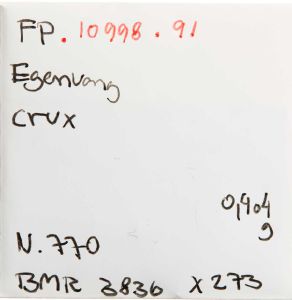 FP. 10998.91
Egenvang
crux
0,404
g
N. 770
BMR 3836 x 273